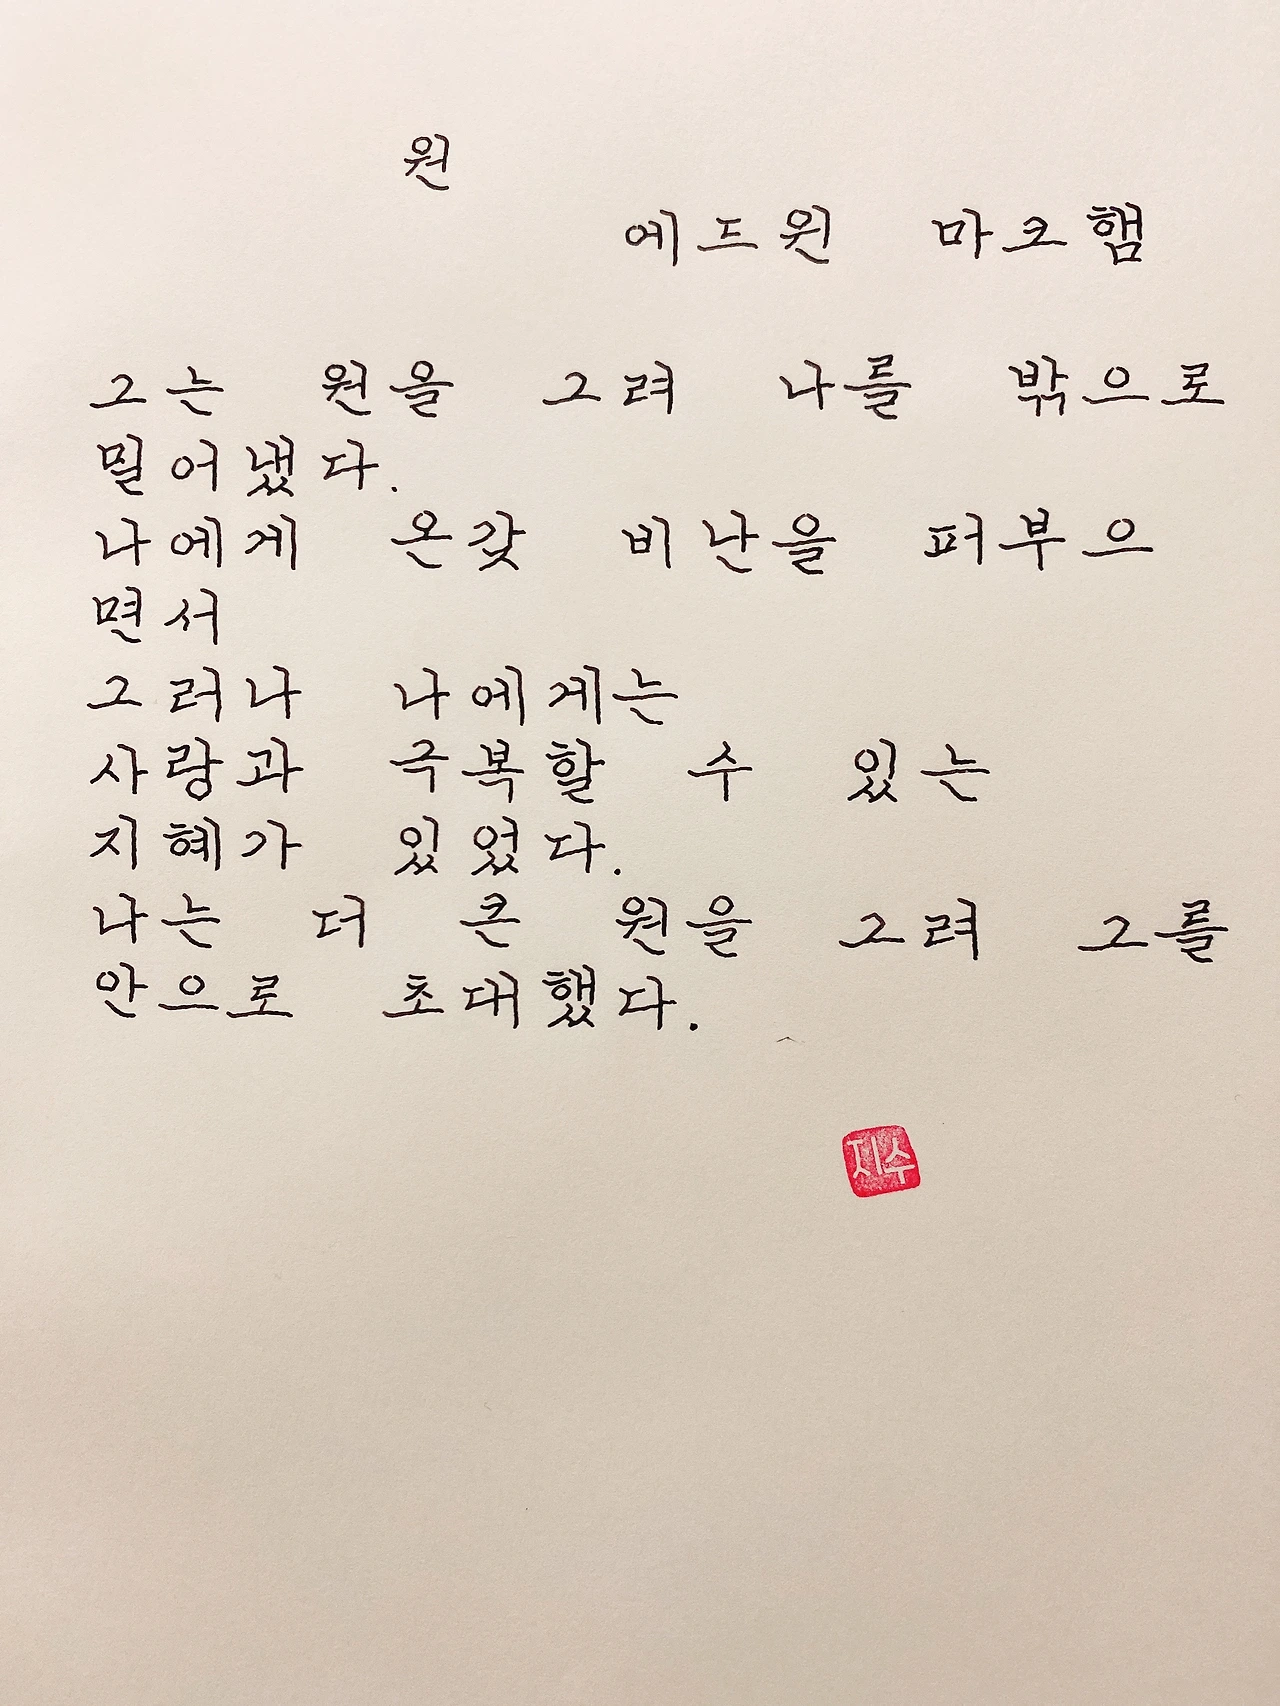 원
에드윈 마크햄
그는 원을 그려 나를 밖으로
밀어냈다.
나에게 온갖 비난을 퍼부으
면서
그러나 나에게는
사랑과 극복할 수 있는
지혜가 있었다.
나는 더 큰 원을 그려 그를
안으로 초대했다.
지수